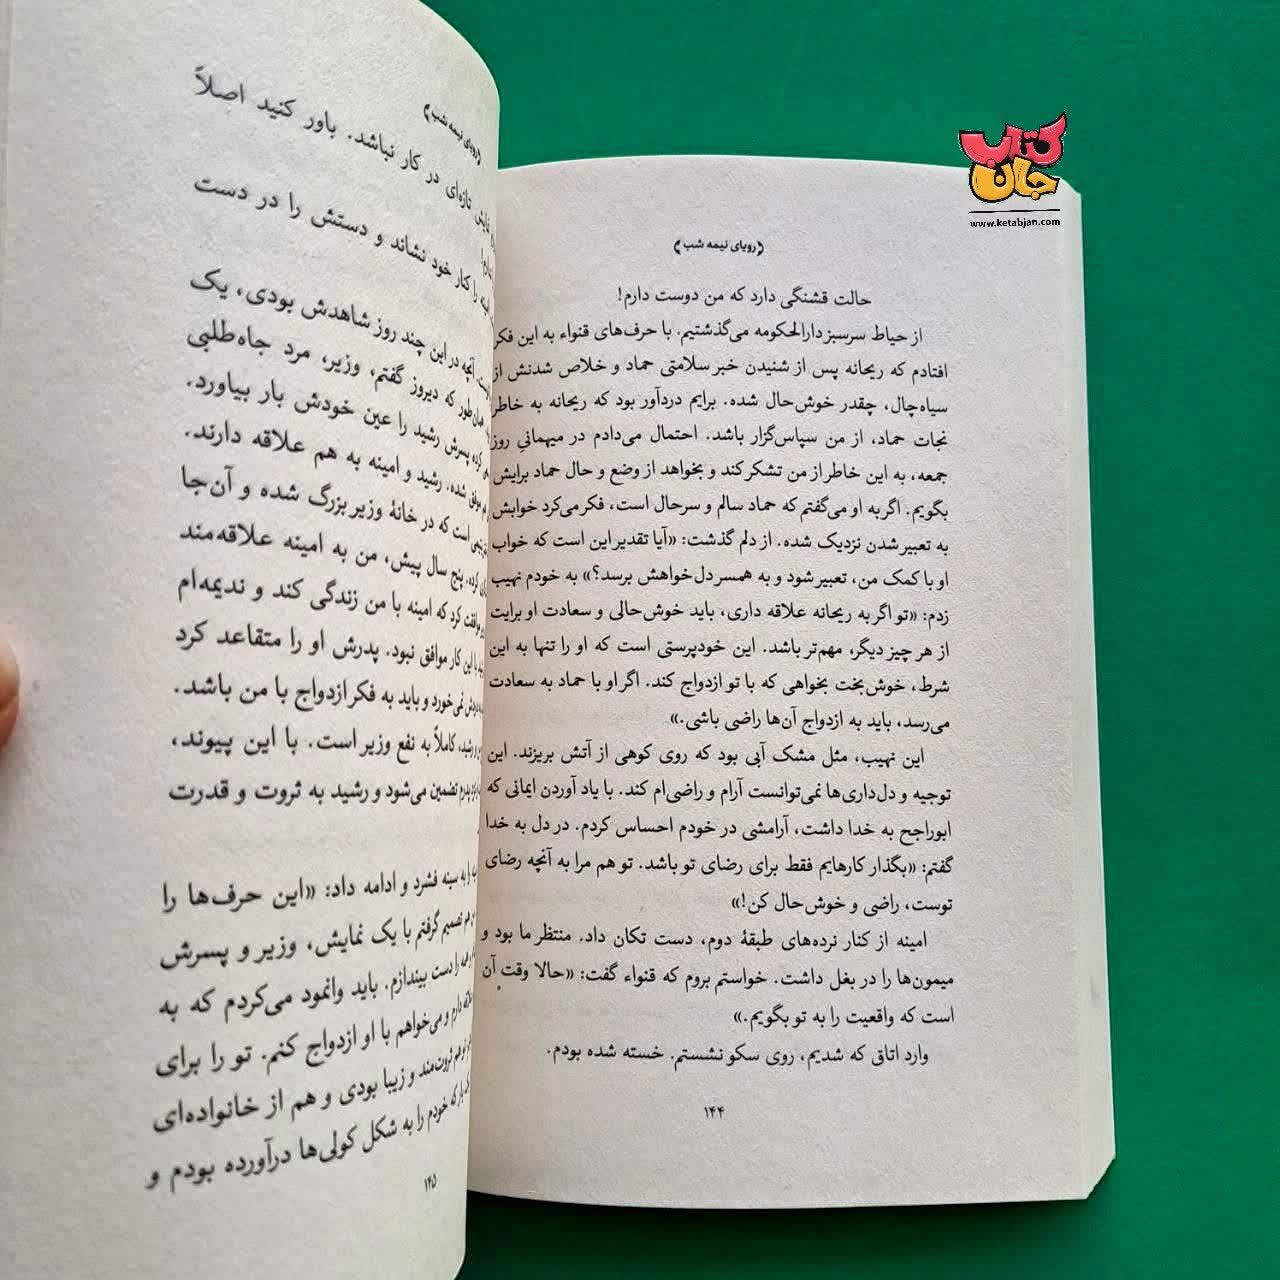 کتاب جان
www.ketabjan.com
رویای نیمه شب
حالت قشنگی دارد که من دوست دارم!
از حیاط سرسبز دارالحکومه می‌گذشتیم. با حرف‌های قنواء به این فکر
افتادم که ریحانه پس از شنیدن خبر سلامتی حماد و خلاص شدنش از
سیاه‌چال، چقدر خوش‌حال شده. برایم دردآور بود که ریحانه به خاطر
نجات حماد، از من سپاس‌گزار باشد. احتمال می‌دادم در میهمانیِ روز
جمعه، به این خاطر از من تشکر کند و بخواهد از وضع و حال حماد برایش
بگویم. اگر به او می‌گفتم که حماد سالم و سرحال است، فکر می‌کرد خوابش
به تعبیر شدن نزدیک شده. از دلم گذشت: «آیا تقدیر این است که خواب
او با کمک من، تعبیر شود و به همسر دل‌خواهش برسد؟» به خودم نهیب
زدم: «تو اگر به ریحانه علاقه داری، باید خوش‌حالی و سعادت او برایت
از هر چیز دیگر، مهم‌تر باشد. این خودپرستی است که او را تنها به این
شرط، خوش‌بخت بخواهی که با تو ازدواج کند. اگر او با حماد به سعادت
می‌رسد، باید به ازدواج آن‌ها راضی باشی.»
این نهیب، مثل مشک آبی بود که روی کوهی از آتش بریزند. این
توجیه و دل‌داری‌ها نمی‌توانست آرام و راضی‌ام کند. با یاد آوردن ایمانی که
ابوراجح به خدا داشت، آرامشی در خودم احساس کردم. در دل به خدا
گفتم: «بگذار کارهایم فقط برای رضای تو باشد. تو هم مرا به آنچه رضای
توست، راضی و خوش‌حال کن!»
امینه از کنار نرده‌های طبقهٔ دوم، دست تکان داد. منتظر ما بود و
میمون‌ها را در بغل داشت. خواستم بروم که قنواء گفت: «حالا وقت آن
است که واقعیت را به تو بگویم.»
وارد اتاق که شدیم، روی سکو نشستم. خسته شده بودم.
۱۴۴
رویای نیمه شب
تازه‌ای در کار نباشد. باور کنید اصلاً
را کنار خود نشاند و دستش را در دست
آنچه در این چند روز شاهدش بودی، یک
همان‌طور که دیروز گفتم، وزیر، مرد جاه‌طلبی
کرده پسرش رشید را عین خودش بار بیاورد.
موفق شده. رشید و امینه به هم علاقه دارند.
است که در خانهٔ وزیر بزرگ شده و آن‌جا
کرده. پنج سال پیش، من به امینه علاقه‌مند
موافقت کرد که امینه با من زندگی کند و ندیمه‌ام
با این کار موافق نبود. پدرش او را متقاعد کرد
نمی‌خورد و باید به فکر ازدواج با من باشد.
رشید، کاملاً به نفع وزیر است. با این پیوند،
تضمین می‌شود و رشید به ثروت و قدرت
به سینه فشرد و ادامه داد: «این حرف‌ها را
تصمیم گرفتم با یک نمایش، وزیر و پسرش
را دست بیندازم. باید وانمود می‌کردم که به
دارم و می‌خواهم با او ازدواج کنم. تو را برای
هم ثروت‌مند و زیبا بودی و هم از خانواده‌ای
که خودم را به شکل کولی‌ها درآورده بودم و
۱۴۵